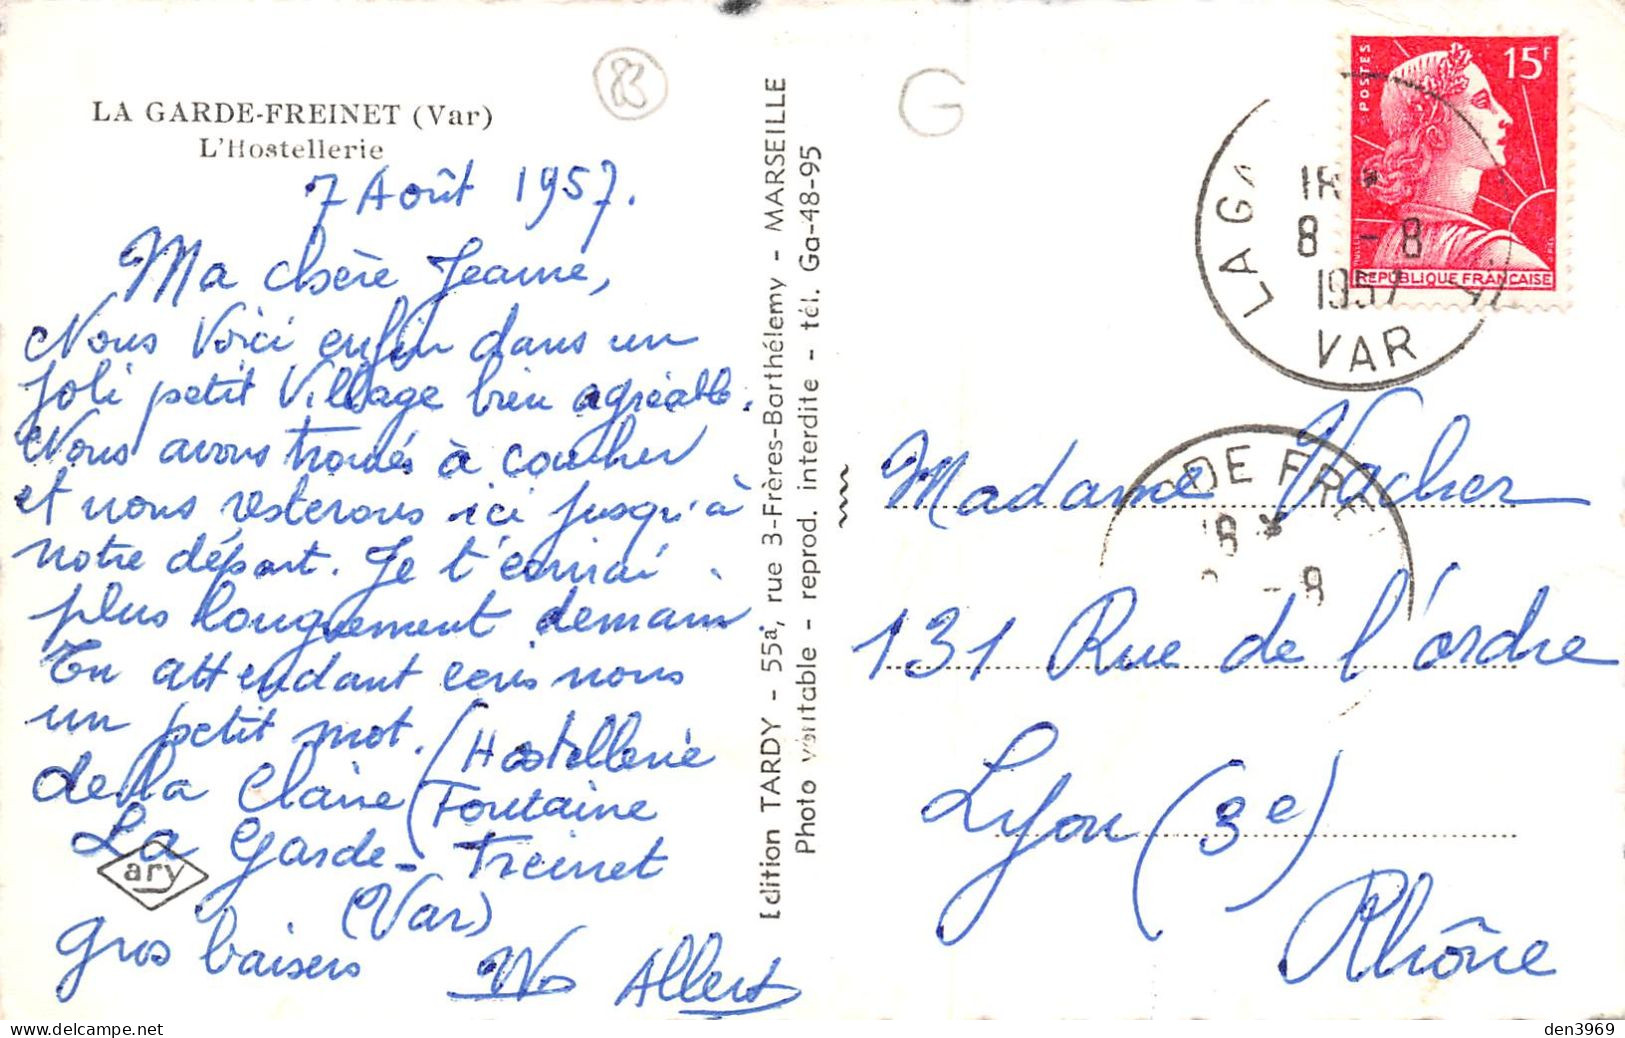 LA GARDE-FREINET (Var)
L'Hostellerie
7 Août 1957.
Ma chère Jeanne,
Nous Voici enfin dans un
Joli petit Village bien agréable.
Nous avons trouvés à coucher
et nous resterons ici jusqu'à
notre départ. Je t'écrirai
plus longuement demain
En attendant ecris nous
un petit mot. (Hostellerie
de la Claire Fontaine
La Garde-Freinet
(Var)
Gros baisers
Albert
ary
83
Edition TARDY - 55a, rue 3-Frères-Barthélemy - MARSEILLE
Photo véritable - reprod. interdite - tél. Ga-48-95
G
POSTES
15F
REPUBLIQUE FRANCAISE
LA GA
18 *
8 - 8
1957
VAR
DE FRE
18 *
- 8
Madame Vacher
131 Rue de l'ordre
Lyon (3e)
Rhône
den3969